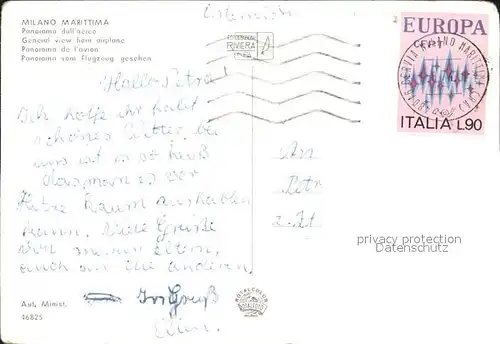 Österreich
MILANO MARITTIMA
Panorama dall'aereo
General view from airplane
Panorama de l'avion
Panorama vom Flugzeug gesehen
RIVIERA
EUROPA
CEPT
CERVIA MILANO MARITTIMA
ITALIA L.90
Hallo Petra!
Ich hoffe ihr habt
schönes Wetter, bei
uns ist es so heiß
dass man es vor
Hitze kaum aushalten
kann. Viele Grüße
von meinen Eltern,
auch an die anderen.
Gruß
An
Petr
privacy protection
Datenschutz
Aut. Minist.
46825
ROTALCOLOR
ROTALFOTO